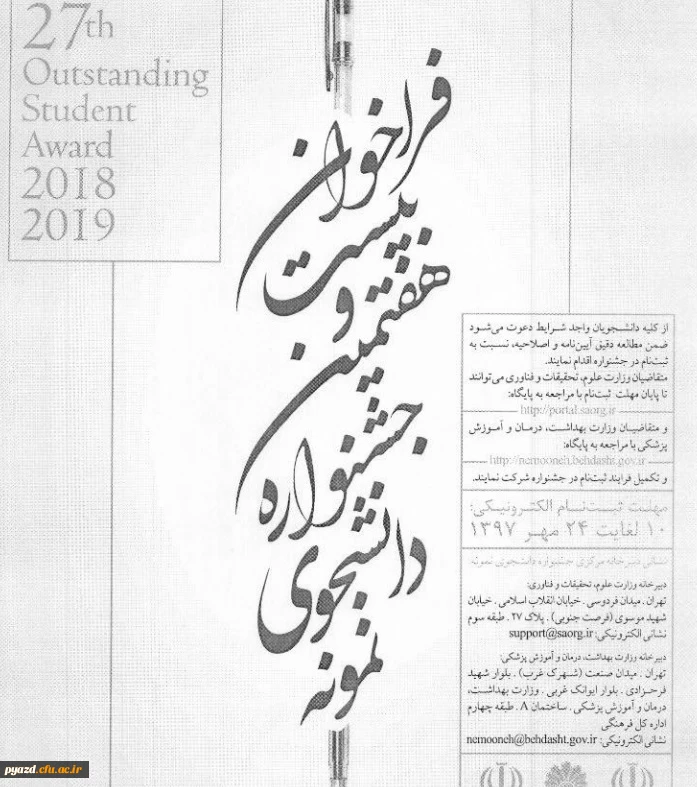 27th
Outstanding
Student
Award
2018
2019
فراخوان
بیست
و
هفتمین
جشنواره
دانشجوی
نمونه
از کلیه دانشجویان واجد شرایط دعوت می‌شود
ضمن مطالعه دقیق آیین‌نامه و اصلاحیه، نسبت به
ثبت‌نام در جشنواره اقدام نمایند.
متقاضیان وزارت علوم، تحقیقات و فناوری می‌توانند
تا پایان مهلت ثبت‌نام با مراجعه به پایگاه:
http://portal.saorg.ir
و متقاضیان وزارت بهداشت، درمان و آموزش
پزشکی با مراجعه به پایگاه:
http://nemooneh.behdasht.gov.ir
و تکمیل فرایند ثبت‌نام در جشنواره شرکت نمایند.
مهلت ثبت‌نام الکترونیکی:
۱۰ لغایت ۲۴ مهر ۱۳۹۷
نشانی دبیرخانه مرکزی جشنواره دانشجوی نمونه
دبیرخانه وزارت علوم، تحقیقات و فناوری:
تهران . میدان فردوسی . خیابان انقلاب اسلامی . خیابان
شهید موسوی (فرصت جنوبی) . پلاک ۲۷ . طبقه سوم
نشانی الکترونیکی: support@saorg.ir
دبیرخانه وزارت بهداشت، درمان و آموزش پزشکی:
تهران . میدان صنعت (شهرک غرب) . بلوار شهید
فرحزادی . بلوار ایوانک غربی . وزارت بهداشت،
درمان و آموزش پزشکی . ساختمان A . طبقه چهارم
اداره کل فرهنگی
نشانی الکترونیکی: nemooneh@behdasht.gov.ir
pyazd.cfu.ac.ir